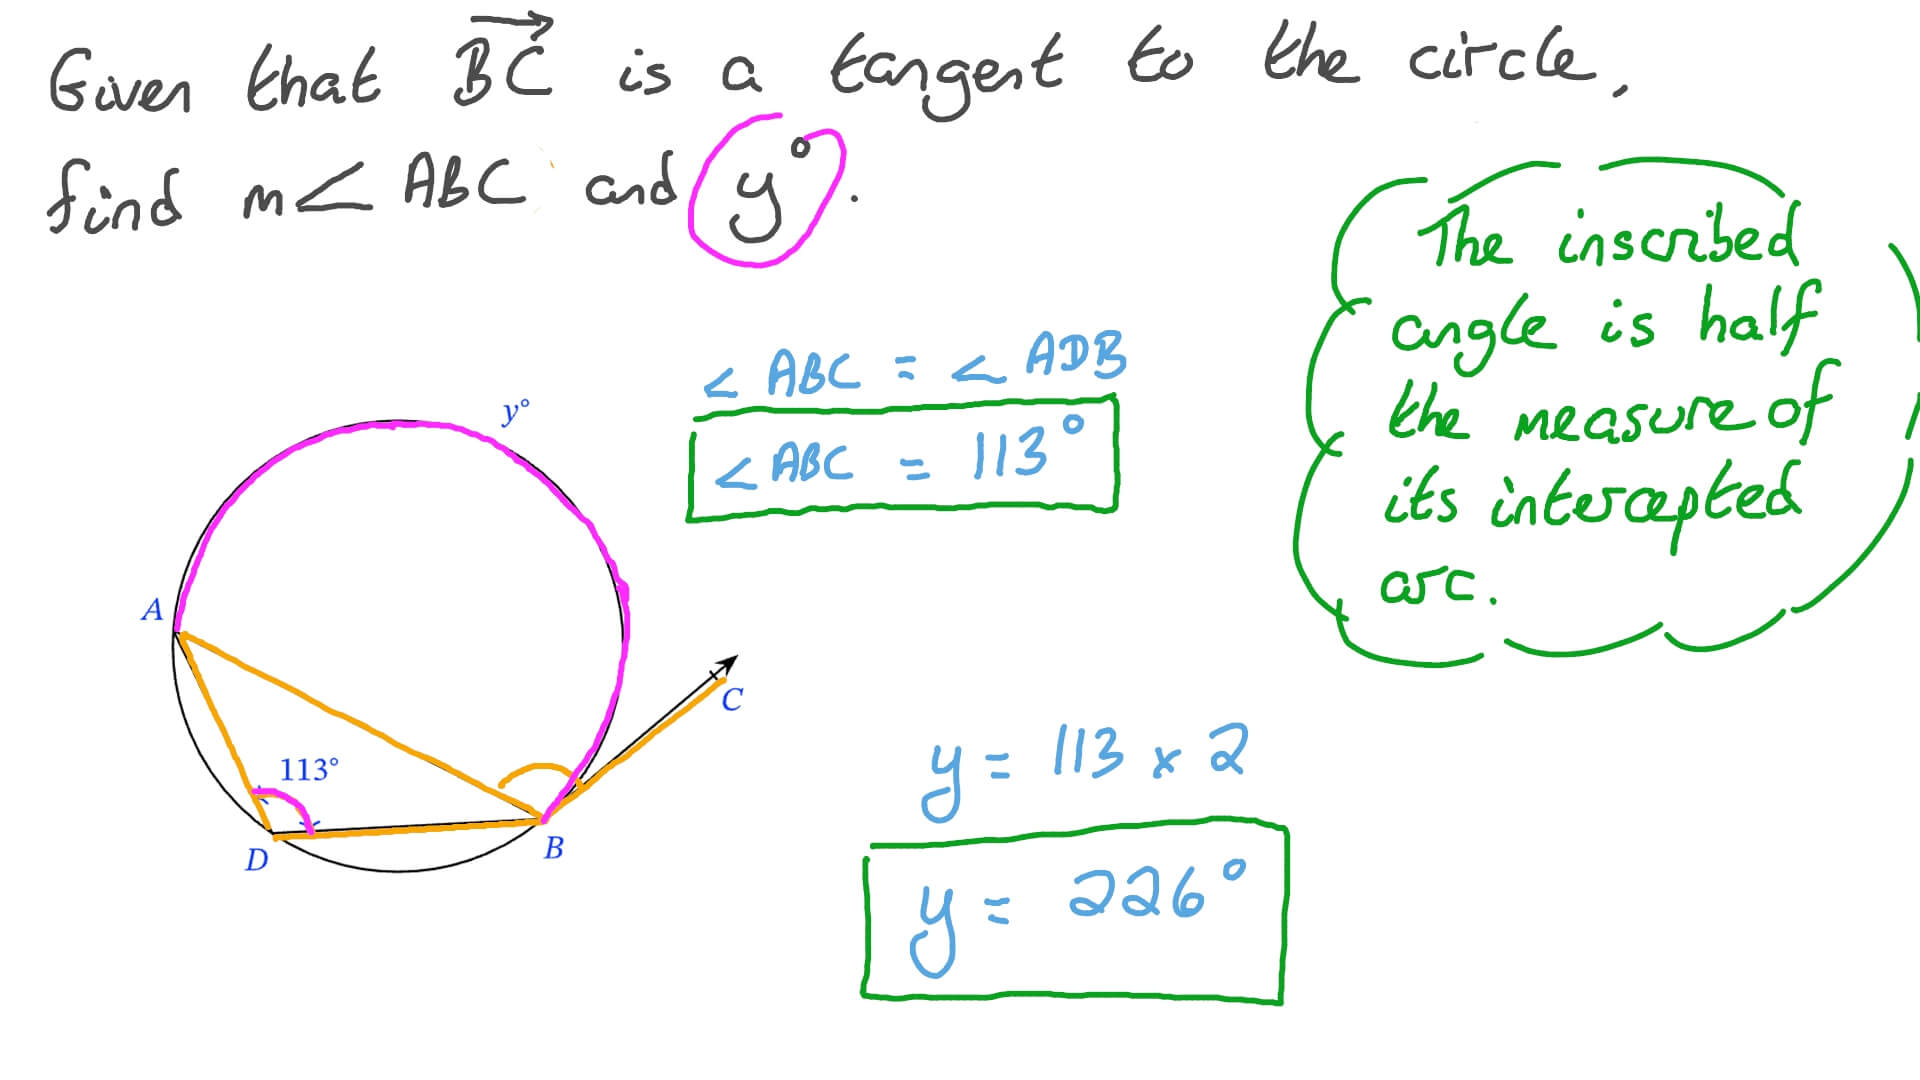 Given that BC is a tangent to the circle,
find m∠ ABC and y°.
The inscribed
angle is half
the measure of
its intercepted
arc.
∠ ABC = ∠ ADB
∠ ABC = 113°
y°
A
C
113°
D
B
y = 113 x 2
y = 226°